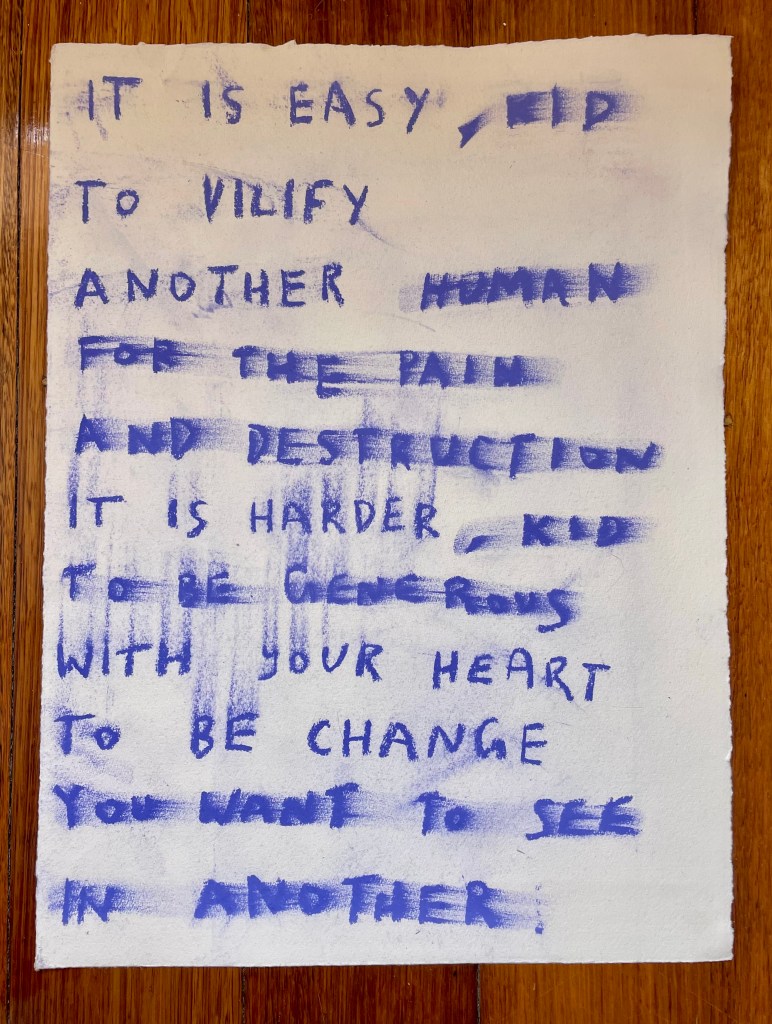 IT IS EASY, KID
TO VILIFY
ANOTHER HUMAN
FOR THE PAIN
AND DESTRUCTION
IT IS HARDER, KID
TO BE GENEROUS
WITH YOUR HEART
TO BE CHANGE
YOU WANT TO SEE
IN ANOTHER.